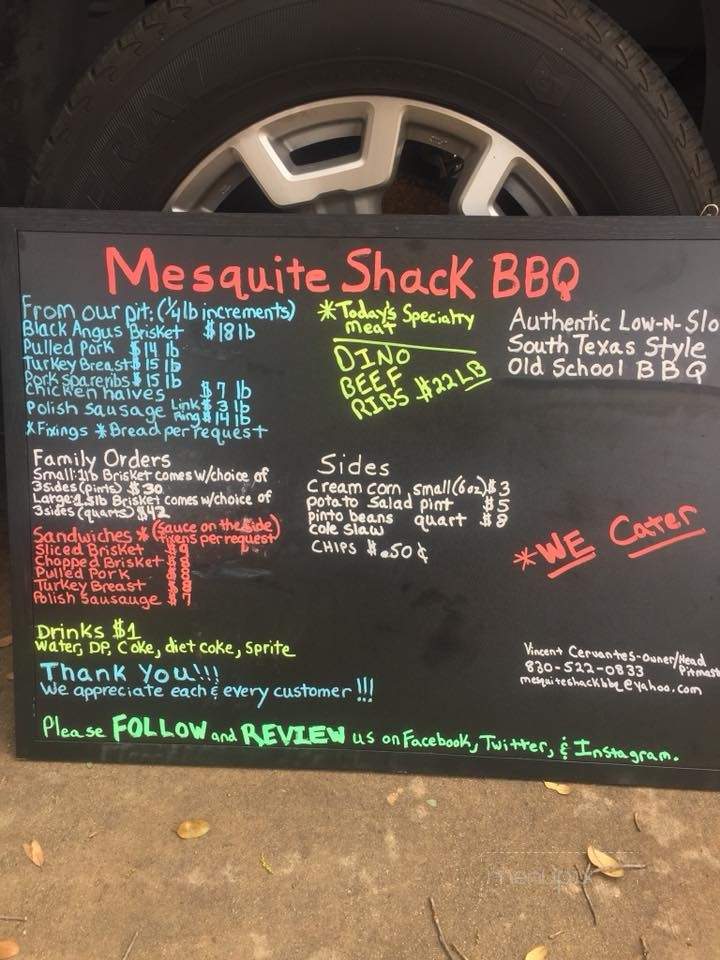 Mesquite Shack BBQ
From our pit: (1/4 lb increments)
Black Angus Brisket $18 lb
Pulled Pork $14 lb
Turkey Breast $15 lb
Pork spareribs $15 lb
Chicken halves $7 lb
Polish Sausage Link $3 lb
Ring $14 lb
*Fixings *Bread per request
*Today's Specialty
meat
DINO
BEEF
RIBS $22 LB
Authentic Low-N-Slo
South Texas Style
Old School BBQ
Family Orders
Small: 1lb Brisket comes w/choice of
3 sides (pints) $30
Large: 1.5lb Brisket comes w/choice of
3 sides (quarts) $42
Sandwiches * (Sauce on the side)
fixens per request
Sliced Brisket
Chopped Brisket
Pulled Pork
Turkey Breast
Polish Sausauge 7
Sides
Cream corn small (6oz) $3
potato Salad pint $5
pinto beans quart $8
cole slaw
CHIPS $.50¢
*WE Cater
Drinks $1
Water, DP, Coke, diet coke, Sprite
Thank You!!!
We appreciate each & every customer!!!
Vincent Cervantes-Owner/Head
Pitmast
830-522-0833
mesquiteshackbbq@yahoo.com
Please FOLLOW and REVIEW us on Facebook, Twitter, & Instagram.
menupix